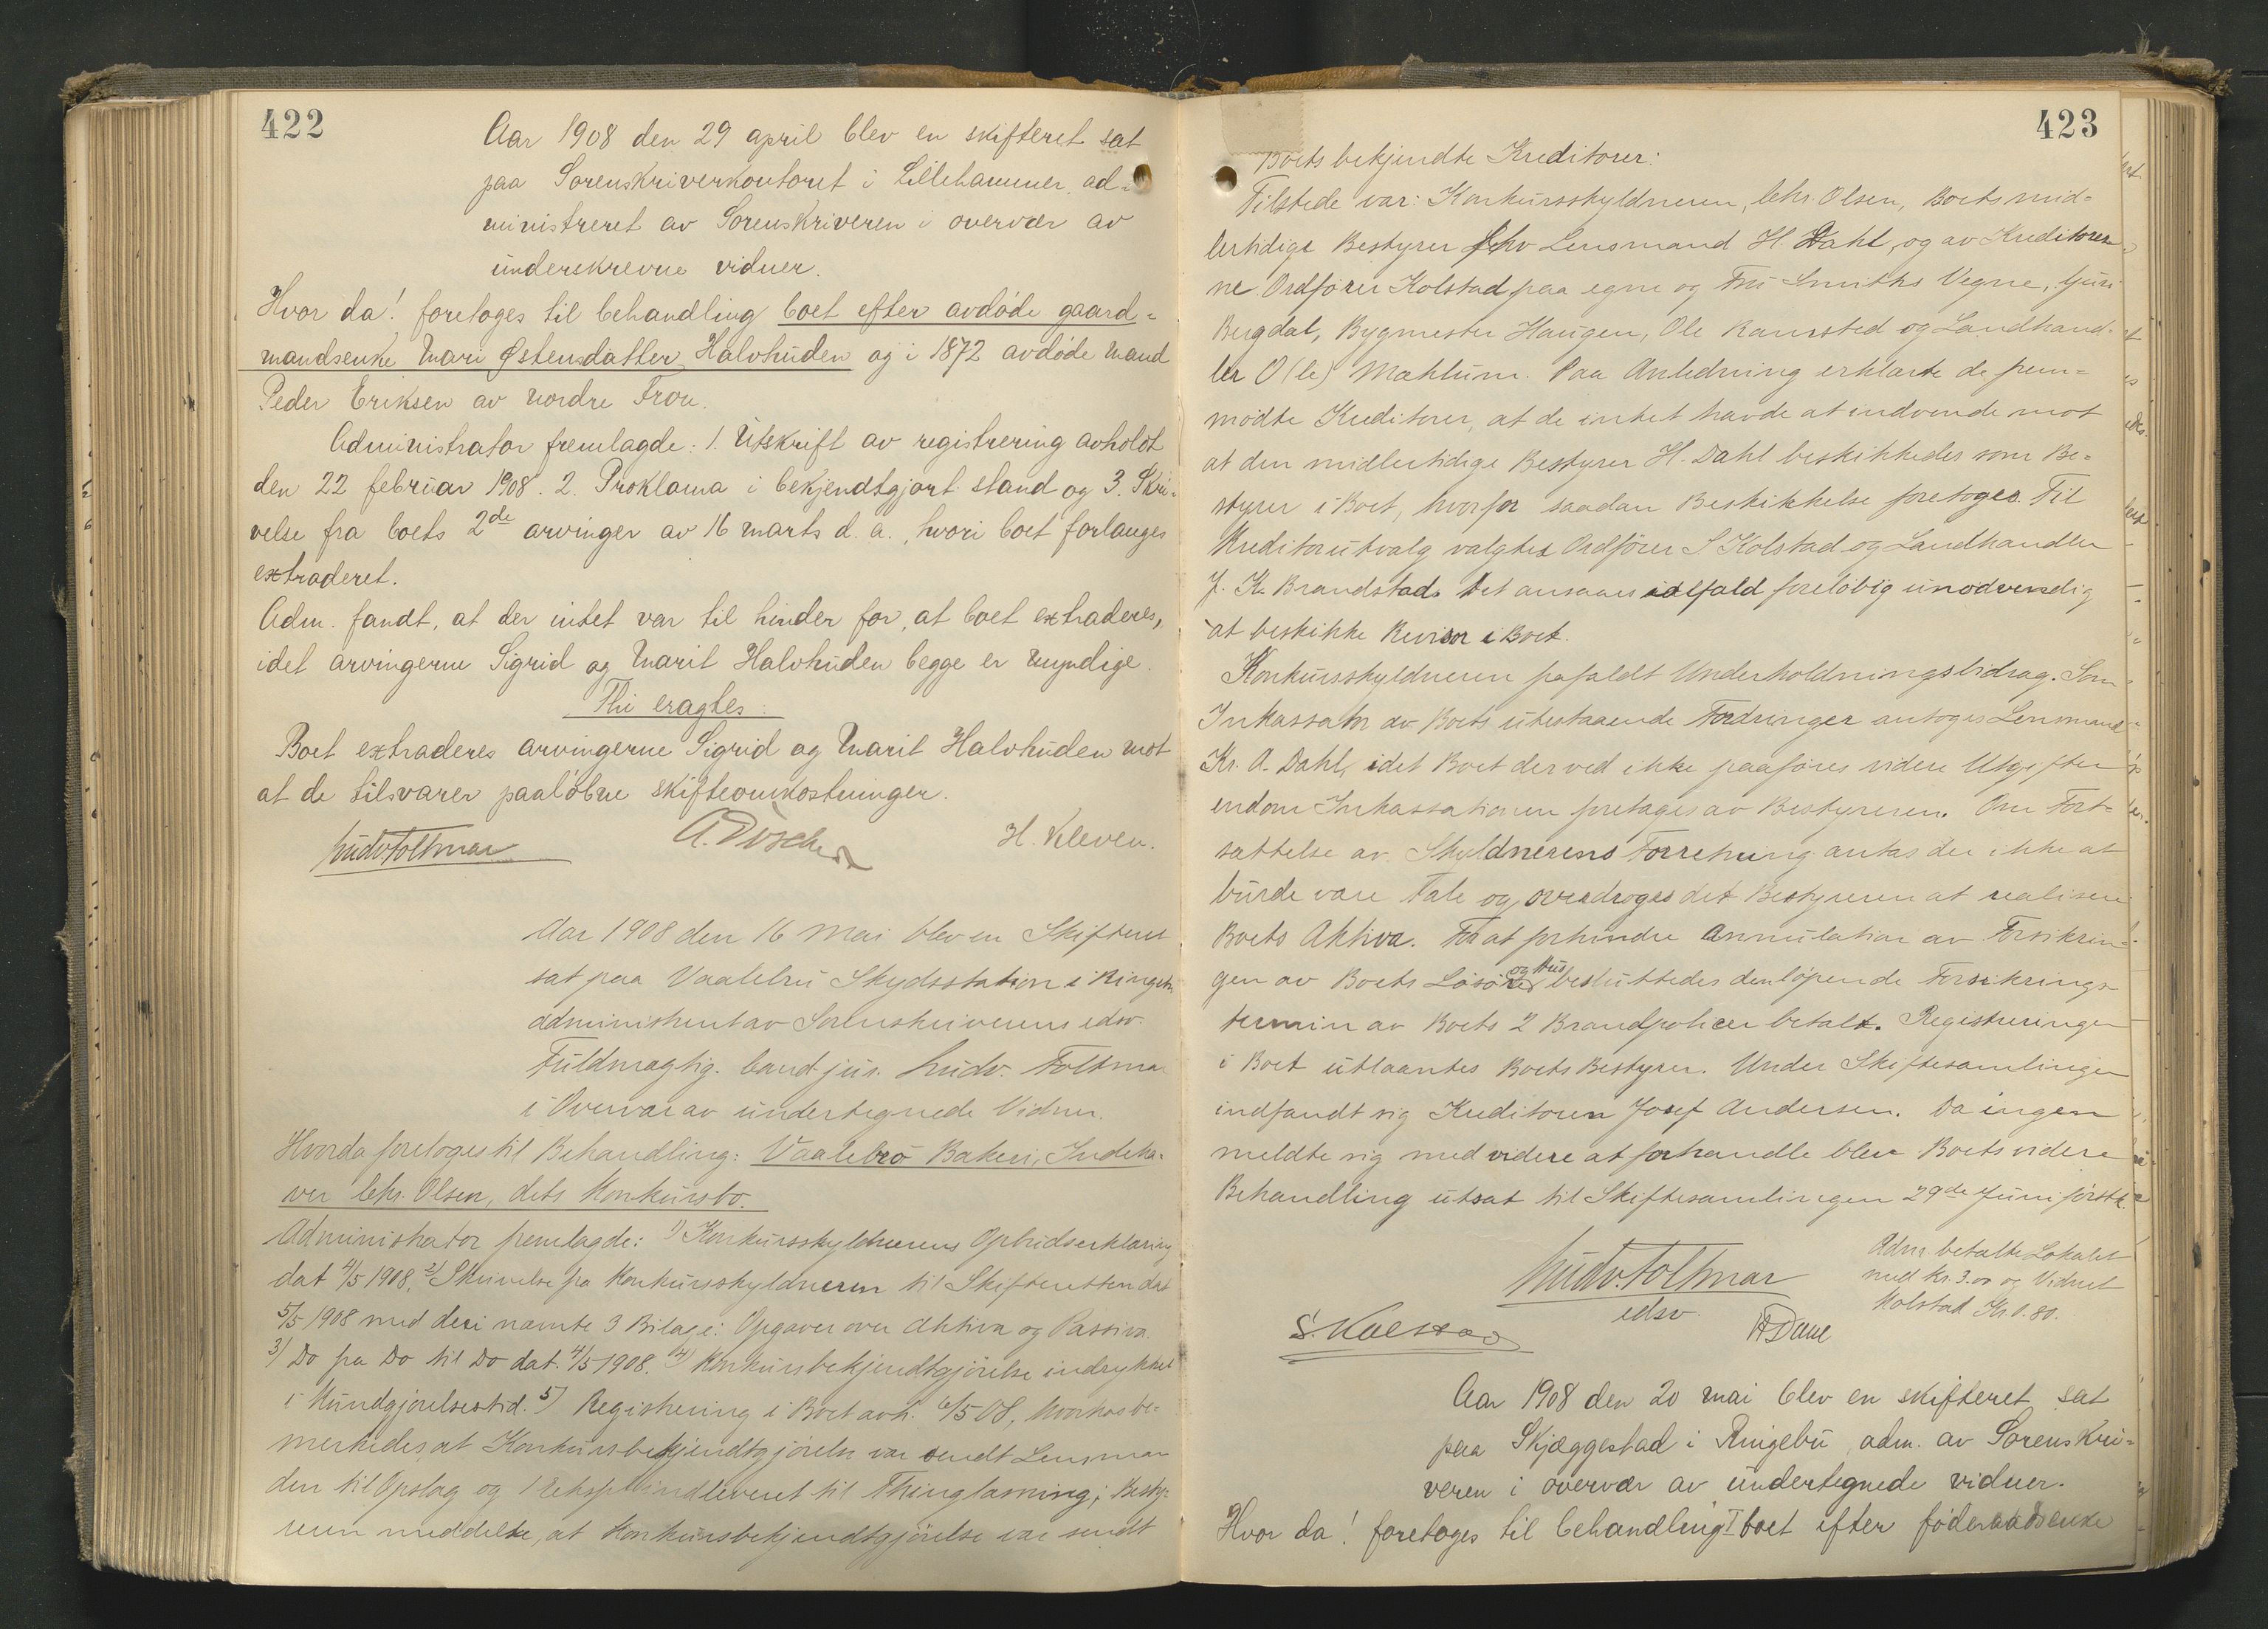 422
Aar 1908 den 29 april blev en skifteret sat
paa Sorenskriverkontoret i Lillehammer, ad-
ministreret av Sorenskriveren i overvær av
underskrevne vidner.
Hvor da! foretoges til behandling boet efter avdøde gaard-
mandsenke Mari Østensdatter Halvhuden og i 1872 avdøde mand
Peder Eriksen av nordre Fron.
Administrator fremlagde: 1. Utskrift av registrering avholdt
den 22 februar 1908. 2. Proklama i bekjendtgjort stand og 3. Skri-
velse fra boets 2de arvinger av 16 marts d. a., hvori boet forlanges
extraderet.
Adm. fandt, at der intet var til hinder for, at boet extraderes,
idet arvingerne Sigrid og Marit Halvhuden begge er myndige.
Thi eragtes:
Boet extraderes arvingerne Sigrid og Marit Halvhuden mot
at de tilsvarer paaløbne skifteomkostninger.
Ludv. Foltmar A. H. Kleven.
Aar 1908 den 16 Mai blev en Skifteret
sat paa Vaalebru Skydsstation i Ringebu
administreret av Sorenskriverens edsv.
Fuldmægtig. cand jur. Ludv. Foltmar
i Overvær av undertegnede Vidner.
Hvorda foretoges til Behandling: Vaalebro Bakeri, Indeha-
ver Chr. Olsen, dets Konkursbo.
Administrator fremlagde: 1) Konkursskyldnerens Opbudserklæring
dat 4/5 1908. 2) Skrivelse fra Konkursskyldneren til Skifteretten dat
5/5 1908 med deri nævnte 3 Bilage: Opgaver over Aktiva og Passiva.
3) Do fra Do til Do dat. 4/5 1908. 4) Konkursbekjendtgjörelse indrykket
i Kundgjörelsestid. 5) Registrering i Boet avh. 6/5 08, hvorhos be-
merkedes, at Konkursbekjendtgjörelse var sendt Lensman
den til Opslag og 1 Ekspl. indleveret til Thinglæsning; Besty-
reren meddelte, at Konkursbekjendtgjörelse var sendt
423
Boets bekjendte Kreditorer:
Tilstede var: Konkursskyldneren, Chr. Olsen, Boets mid-
lertidige Bestyrer Lensmand H. Dahl, og av Kreditorer-
ne Ordförer Kolstad paa egne og Fru Smiths Vegne,
Bergdal, Bygmester Haugen, Ole Ramsted og Landhand-
ler O(le) Mæhlum. Paa Anledning erklærte de frem-
mödte Kreditorer, at de intet havde at indvende mot
at den midlertidige Bestyrer H. Dahl beskikkedes som Be-
styrer i Boet, hvorfor saadan Beskikkelse foretoges. Til
Kreditorutvalg valgtes Ordförer S Kolstad og Landhandler
J. K. Brandstad. Det ansaaes ialfald forelöbig unödvendig
at beskikke Revisor i Boet.
Konkursskyldneren frafaldt Underholdningsbidrag. Som
Inkassator av Boets utestaaende Fordringer antoges Lensmand
Kr. A. Dahl, idet Boet derved ikke paaföres videre Utgifter
endom Inkassationen foretages av Bestyreren. Om Fort-
sættelse av Skyldnerens Forretning antas der ikke at
burde være Tale og overdroges det Bestyreren at realisere
Boets Aktiva. For at forhindre Annulation av Forsikrin-
gen av Boets Lösöre og Hus besluttedes den löpende Forsikrings-
termin av Boets 2 Brandpolicer betalt. Registreringen
i Boet utlaantes Boets Bestyrer. Under Skiftesamlingen
indfandt sig Kreditoren Josef Andersen. Da ingen
meldte sig med videre at forhandle blev Boets videre
Behandling utsat til Skiftesamlingen 29de Juni förstk.
Ludv. Foltmar
edsv.
Adm. betalte Lokalet
med Kr. 3.00 og Vidnet
Kolstad Kr. 0.80.
S. Kolstad HDahl
Aar 1908 den 20 mai blev en skifteret sat
paa Skjæggestad i Ringebu, adm. av Sorenskri-
veren i overvær av undertegnede vidner.
Hvor da! foretoges til behandling I boet efter føderaadsenke